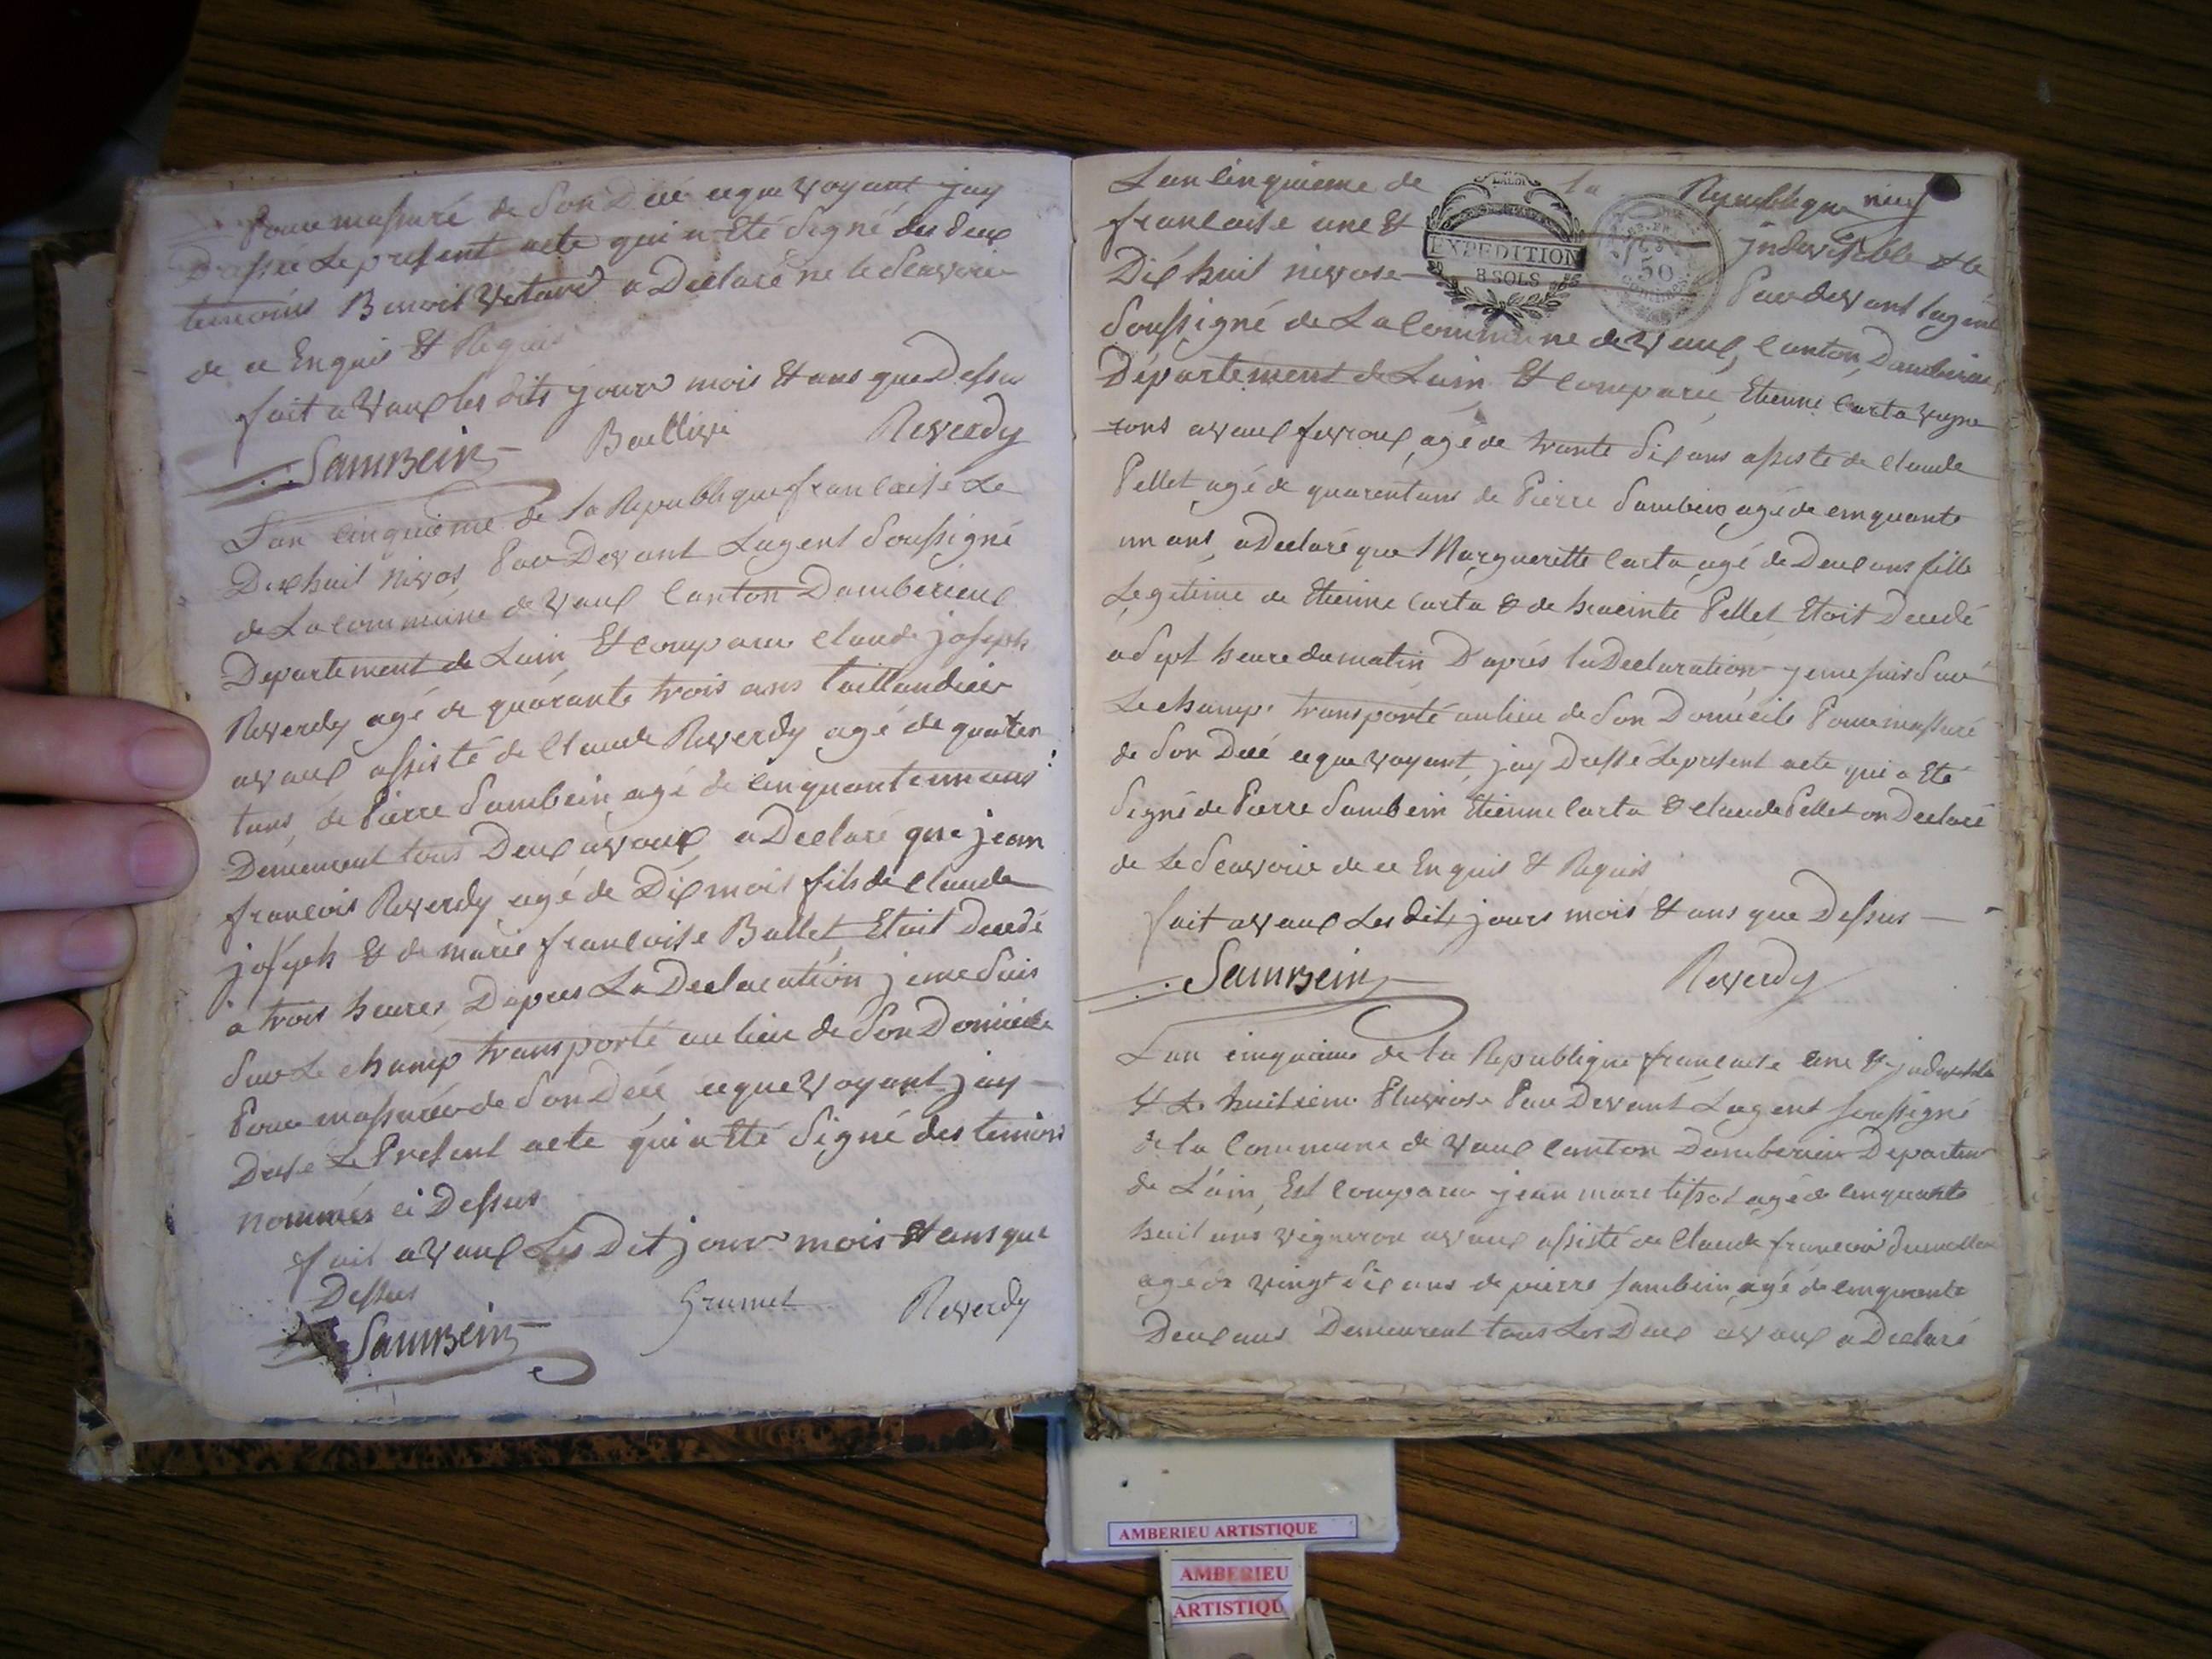 Pour massuré de Son Décé ceque voyant jay
Dressée Le present acte qui a Eté Signé des deux
temoins Benoit Vetard a Déclaré ne le Scavoir
de ce Enquis Et Requis
fait a Vaux les dits jour mois Et ans que Dessu
Sambein Baillivi Reverdy
L'an cinquième de la Republique francaise Le
Dixhuit nivos Par Devant Lagent Soussigné
de La commune de Vaux Canton Dambérieux
Département de Lain Et comparu claude joseph
Reverdy agé de quarante trois ans taillandier
avaux assisté de Claude Reverdy agé de quaren
tans, de Pierre Sambein agé de cinquante un ans
Demeurent tous Deux avaux a Déclaré que jean
françois Reverdy agé de Dix mois fils de Claude
joséph & de marie françoise Ballet Etait Decedé
à trois heures Dapres La Declaration jeme Suis
Sur Le champ transporté au lieu de Son Domicile
Pour massurér de Son Décé ceque voyant jay
Dressé Le Present acte qui a Eté Signé des temoins
nommés ci Dessus
fait a Vaux Les Dit jour mois Et ans que
Dessus
Sambein Grumet Reverdy
L'an cinquieme de la Republique neuf
francaise une & indivisible & le
EXPEDITION
8 SOLS
50
CENTIMES
Dix huit nivose Par devant lagent
Soussigné de La Commune de Vaux, Canton Damberieux
Département de Lain Et comparu Etienne Carta vigne
rons avaux fevroux, agé de trante Six ans assisté de Claude
Pellet agé de quarentans de Pierre Sambein agé de cinquante
un ans, a Declaré que Marguerette Carta agé de Deux ans fille
Legetime de Etienne Carta & de hiacinte Pellet Etoit Decedé
a Sept heure du matin D'aprés la Declaration jeme suis Sur
Le champ transporté au lieu de Son Domicile Pour massuré
de Son Décé ceque voyant, jay Dressé Le present acte qui a Eté
Signé de Pierre Sambein Etienne Carta & Claude Pellet on Declaré
de Le Scavoir de ce Enquis & Requis
fait avaux Les dit jours mois & ans que Dessus
Sambein Reverdy
L'an cinquieme de la Republique francaise une & indivisible
& Le huitieme Pluviose Par Devant Lagent soussigné
de la Commune de Vaux Canton Damberieu Departem
de L'ain, Est comparu jean marc tissot agé de cinquante
huit ans vigneron avaux assisté de Claude francois Dumollar
agé de vingt Six ans de pierre sambein, agé de cinquante
Deux ans Demeurent tous Les Deux avaux a Declaré
AMBERIEU ARTISTIQUE
AMBERIEU
ARTISTIQU